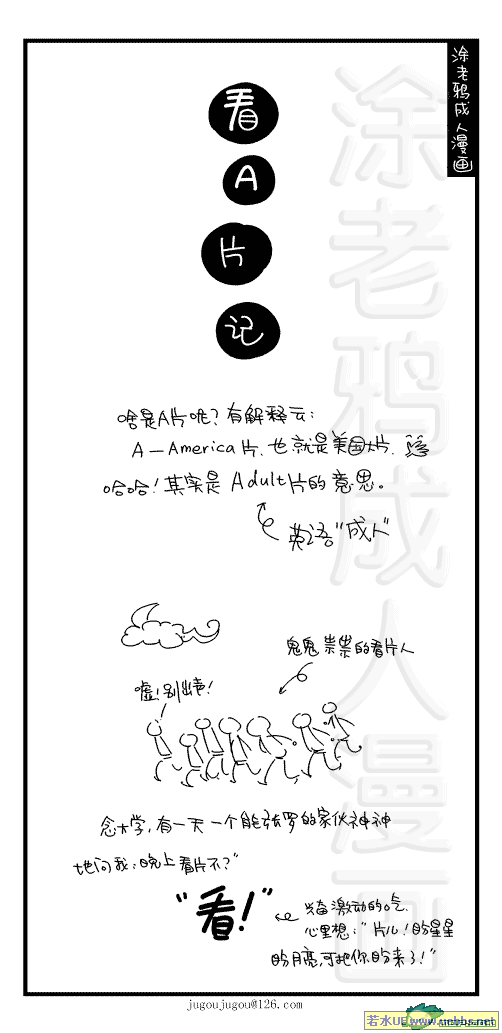 涂老鸦成人漫画
看
A
片
记
啥是A片呢?有解释云:
A—America片,也就是美国大片,
哈哈!其实是Adult片的意思。
英语"成人"
鬼鬼祟祟的看片人
嘘!别出声!
念大学,有一天一个能张罗的家伙神神
地问我:晚上看片不?"
"看!"
兴奋激动的吃
心里想:"片儿!盼星星
盼月亮,可把你盼来了!"
涂老鸦成人漫画
jugoujugou@126.com
若水UE www.uebbs.net